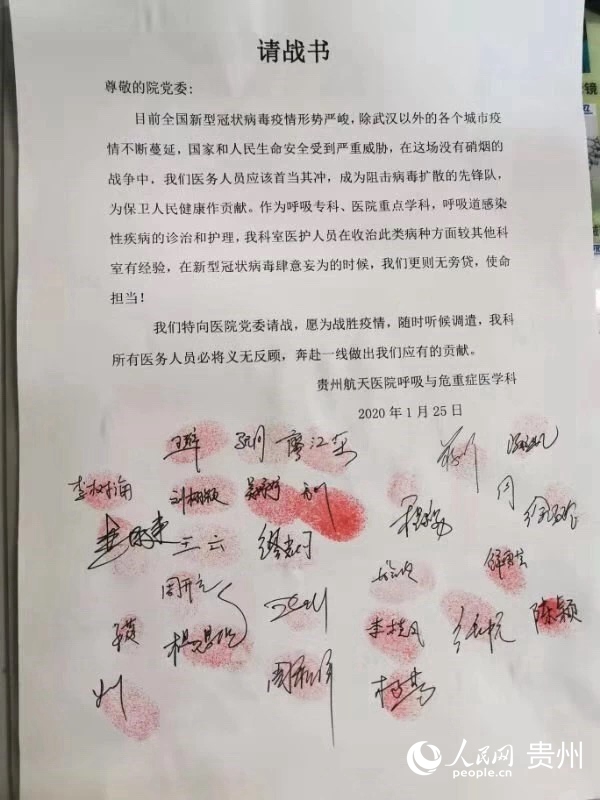 请战书
尊敬的院党委:
目前全国新型冠状病毒疫情形势严峻，除武汉以外的各个城市疫
情不断蔓延，国家和人民生命安全受到严重威胁，在这场没有硝烟的
战争中，我们医务人员应该首当其冲，成为阻击病毒扩散的先锋队，
为保卫人民健康作贡献。作为呼吸专科、医院重点学科，呼吸道感染
性疾病的诊治和护理，我科室医护人员在收治此类病种方面较其他科
室有经验，在新型冠状病毒肆意妄为的时候，我们更则无旁贷，使命
担当！
我们特向医院党委请战，愿为战胜疫情，随时听候调遣，我科
所有医务人员必将义无反顾，奔赴一线做出我们应有的贡献。
贵州航天医院呼吸与危重症医学科
2020年1月25日
廖江
王云
李桂凤
陈颖
人民网 贵州
people.cn